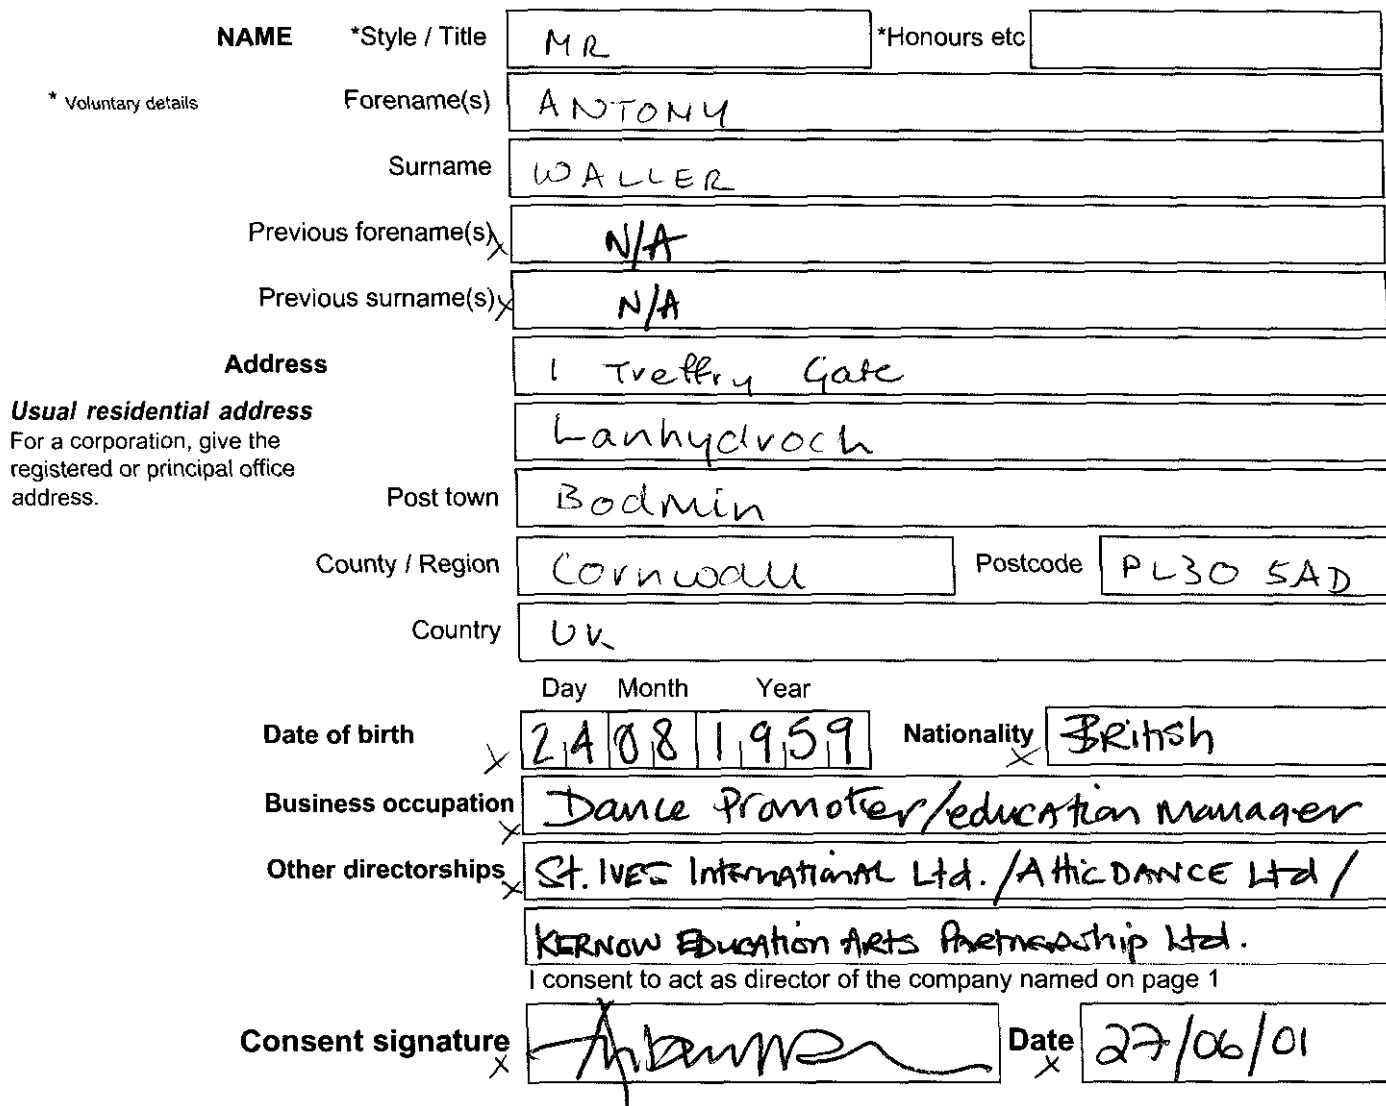 NAME *Style / Title MR *Honours etc
* Voluntary details Forename(s) ANTONY
Surname WALLER
Previous forename(s) N/A
Previous surname(s) N/A
Address 1 Treffry Gate
Usual residential address
For a corporation, give the
registered or principal office
address.
Lanhydroch
Post town Bodmin
County / Region Cornwall Postcode PL30 5AD
Country UK
Day Month Year
Date of birth 24 08 1959 Nationality British
Business occupation Dance Promoter/education Manager
Other directorships St. IVES International Ltd. / Attic DANCE Ltd /
KERNOW EDucation Arts Partnership Ltd.
I consent to act as director of the company named on page 1
Consent signature Date 27/06/01